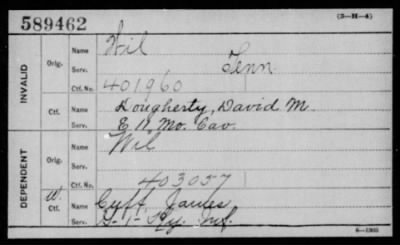 (3-H-4)
589462
INVALID
Orig. Name Wil
Serv. Tenn.
Ctf. No. 401960
Ctf. Name Dougherty, David M.
Serv. E 11. Mo. Cav.
DEPENDENT
Orig. Name Wil
Serv.
Ctf. No. 403057
W.
Ctf. Name Cuff James
Serv. G-1- Ky. Inf.
6-1285